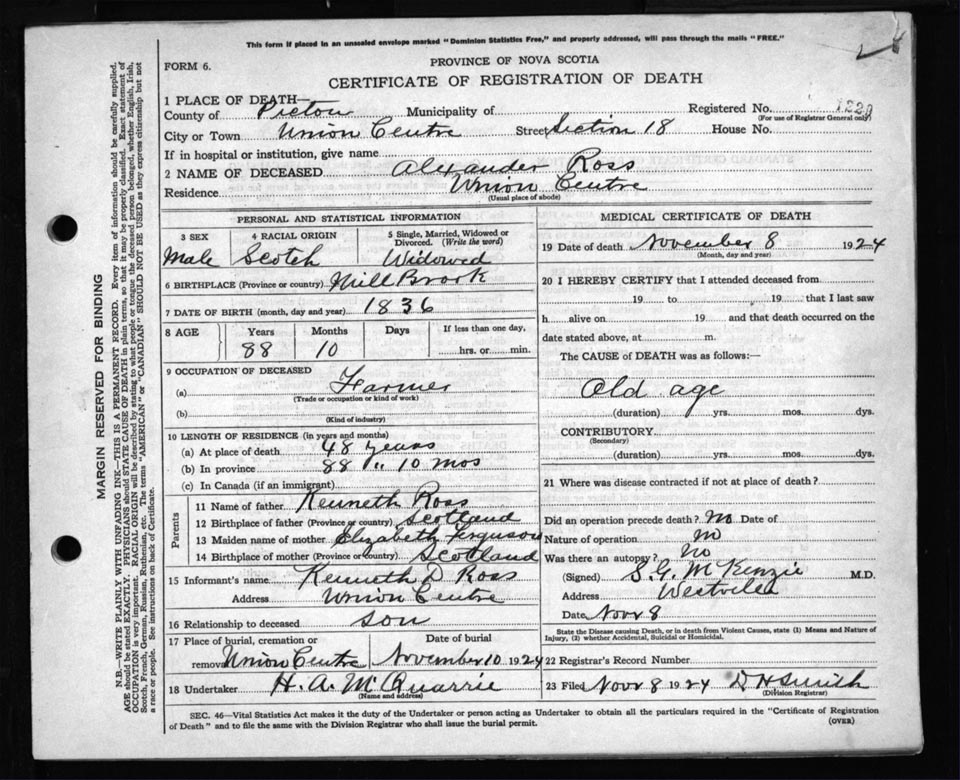 This form if placed in an unsealed envelope marked "Dominion Statistics Free," and properly addressed, will pass through the mails "FREE."
FORM 6.
PROVINCE OF NOVA SCOTIA
CERTIFICATE OF REGISTRATION OF DEATH
1 PLACE OF DEATH—
County of Pictou Municipality of Registered No.
(For use of Registrar General only)
City or Town Union Centre Street Section 18 House No.
If in hospital or institution, give name
2 NAME OF DECEASED Alexander Ross
Residence Union Centre
(Usual place of abode)
PERSONAL AND STATISTICAL INFORMATION
3 SEX 4 RACIAL ORIGIN 5 Single, Married, Widowed or Divorced. (Write the word)
Male Scotch Widowed
6 BIRTHPLACE (Province or country) Mill Brook
7 DATE OF BIRTH (month, day and year) 1836
8 AGE Years Months Days If less than one day,
88 10 hrs. or min.
9 OCCUPATION OF DECEASED
(a) Farmer
(Trade or occupation or kind of work)
(b)
(Kind of industry)
10 LENGTH OF RESIDENCE (in years and months)
(a) At place of death 48 years
(b) In province 88 " 10 mos
(c) In Canada (if an immigrant)
Parents
11 Name of father Kenneth Ross
12 Birthplace of father (Province or country) Scotland
13 Maiden name of mother Elizabeth Ferguson
14 Birthplace of mother (Province or country) Scotland
15 Informant's name Kenneth D Ross
Address Union Centre
16 Relationship to deceased son
17 Place of burial, cremation or removal Date of burial
Union Centre November 10 1924
18 Undertaker H. A. McQuarrie
(Name and address)
MEDICAL CERTIFICATE OF DEATH
19 Date of death November 8 1924
(Month, day and year)
20 I HEREBY CERTIFY that I attended deceased from
19 to 19 that I last saw
h alive on 19 and that death occurred on the
date stated above, at m.
The CAUSE of DEATH was as follows:—
Old age
(duration) yrs. mos. dys.
CONTRIBUTORY
(Secondary)
(duration) yrs. mos. dys.
21 Where was disease contracted if not at place of death?
Did an operation precede death? No Date of
Nature of operation No
Was there an autopsy? No
(Signed) S. G. McKenzie M.D.
Address Westville
Date Novr 8
State the Disease causing Death, or in death from Violent Causes, state (1) Means and Nature of
Injury, (2) whether Accidental, Suicidal or Homicidal.
22 Registrar's Record Number
23 Filed Novr 8 1924 D H Smith
(Division Registrar)
SEC. 46—Vital Statistics Act makes it the duty of the Undertaker or person acting as Undertaker to obtain all the particulars required in the "Certificate of Registration
of Death" and to file the same with the Division Registrar who shall issue the burial permit.
(OVER)
MARGIN RESERVED FOR BINDING
N.B.—WRITE PLAINLY WITH UNFADING INK—THIS IS A PERMANENT RECORD. Every item of information should be carefully supplied.
AGE should be stated EXACTLY. PHYSICIANS should STATE CAUSE OF DEATH in plain terms, so that it may be properly classified. Exact statement of
OCCUPATION is very important. RACIAL ORIGIN will be described by stating to what people or tongue the deceased person belonged, whether English, Irish,
Scotch, French, German, Russian, Ruthenian, etc. The terms "AMERICAN" or "CANADIAN" SHOULD NOT BE USED as they express citizenship but not
a race or people. See instructions on back of Certificate.